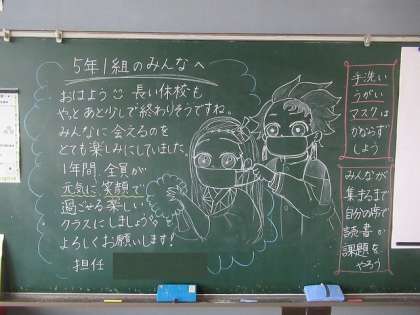 5年1組のみんなへ
おはよう 長い休校も
やっとあと少しで終わりそうですね。
みんなに会えるのを
とても楽しみにしていました。
1年間、全員が
元気に笑顔で
過ごせる楽しい
クラスにしましょう。
よろしくお願いします!
担任
手洗い
うがい
マスクは
かならず
しよう
みんなが
集まるまで
自分の席で
読書か
課題を
やろう